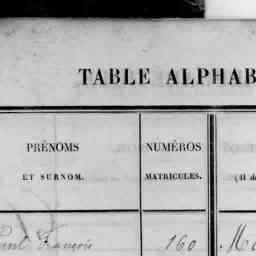 TABLE ALPHAB
PRÉNOMS
ET SURNOM.
NUMÉROS
MATRICULES.
(Il d
François
160
M